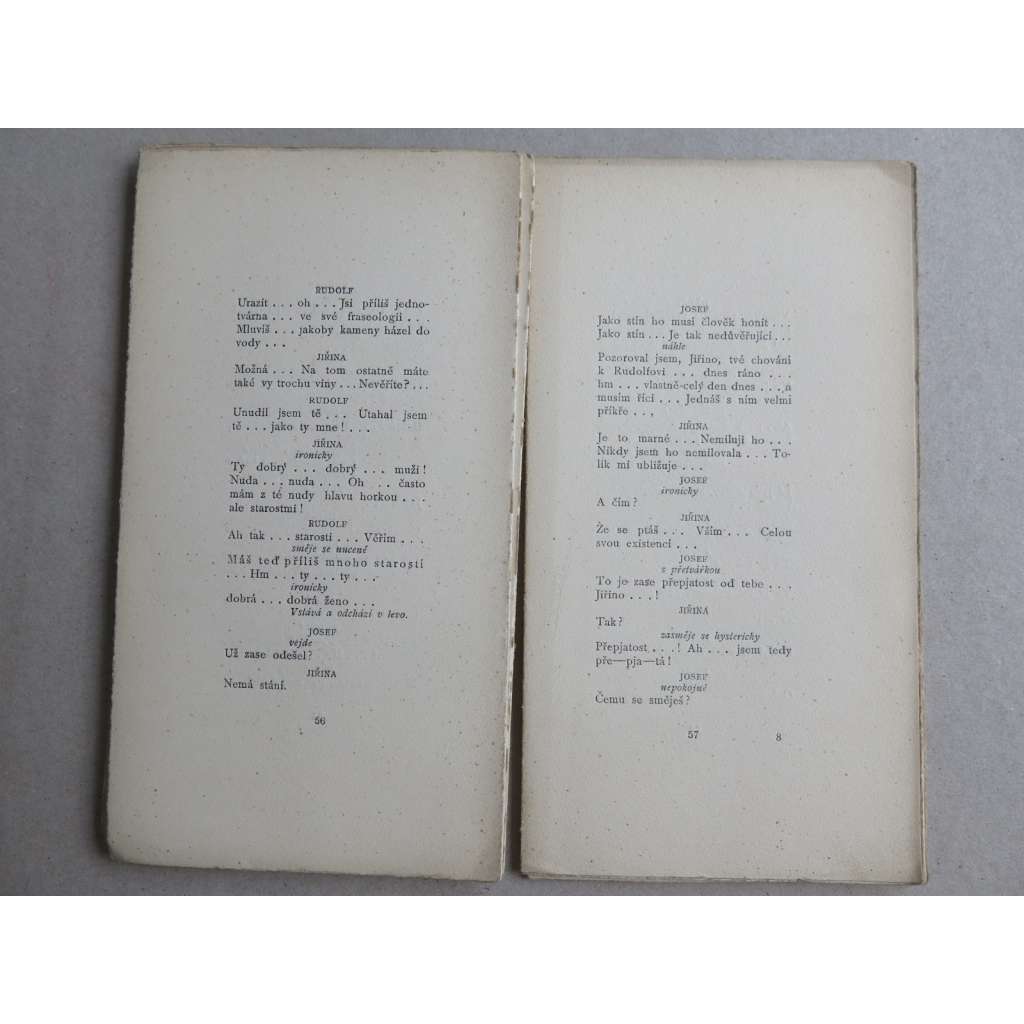 RUDOLF
Urazit . . . oh . . . Jsi příliš jedno-
tvárna . . . ve své fraseologii . . .
Mluvíš . . . jakoby kameny házel do
vody . . .
JIŘINA
Možná . . . Na tom ostatně máte
také vy trochu viny . . . Nevěříte? . . .
RUDOLF
Unudil jsem tě . . . Utahal jsem
tě . . . jako ty mne! . . .
JIŘINA
ironicky
Ty dobrý . . . dobrý . . . muži!
Nuda . . . nuda . . . Oh . . často
mám z té nudy hlavu horkou . . .
ale starostmi!
RUDOLF
Ah tak . . . starosti . . . Věřím . . .
směje se nuceně
Máš teď příliš mnoho starostí
. . . Hm . . . ty . . . ty . . .
ironicky
dobrá . . . dobrá ženo . . .
Vstává a odchází v levo.
JOSEF
vejde
Už zase odešel?
JIŘINA
Nemá stání.
56
JOSEF
Jako stín ho musí člověk honit . . .
Jako stín . . . Je tak nedůvěřující . . .
náhle
Pozoroval jsem, Jiřino, tvé chování
k Rudolfovi . . . dnes ráno . . .
hm . . . vlastně celý den dnes . . . a
musím říci . . . Jednáš s ním velmi
příkře . . .
JIŘINA
Je to marné . . . Nemiluji ho . . .
Nikdy jsem ho nemilovala . . . To-
lik mi ubližuje . . .
JOSEF
ironicky
A čím?
JIŘINA
Že se ptáš . . . Vším . . . Celou
svou existencí . . .
JOSEF
s přetvářkou
To je zase přepjatost od tebe . . .
Jiřino . . . !
JIŘINA
Tak?
zasměje se hystericky
Přepjatost . . . ! Ah . . . jsem tedy
pře—pja—tá!
JOSEF
nepokojně
Čemu se směješ?
57 8